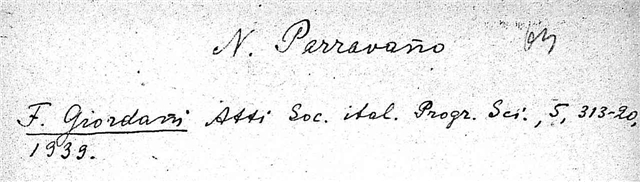 N. Parravaño
F. Giordani Atti Soc. ital. Progr. Sci., 5, 313-20,
1939.